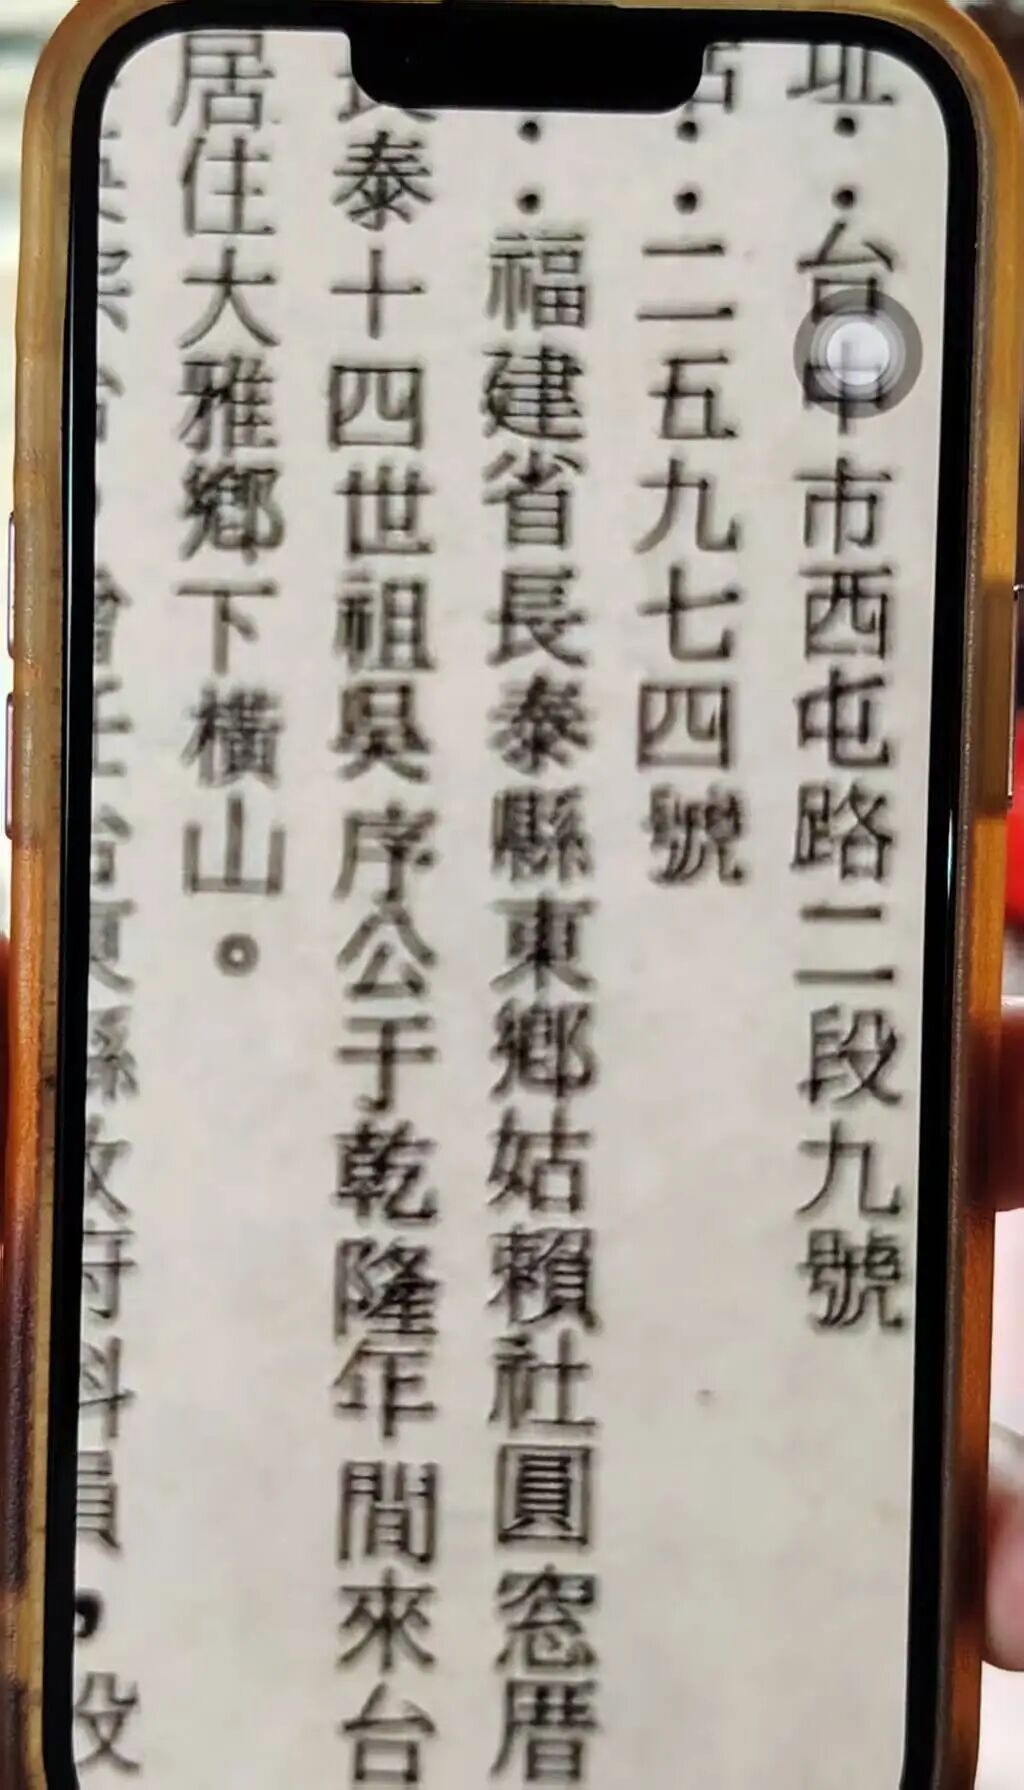 址：台中市西屯路二段九號
：二二五九七四號
：福建省長泰縣東鄉姑賴社圓窓厝
長泰十四世祖吳序公于乾隆年間來台
居住大雅鄉下橫山。
曾任台東縣政府科員，